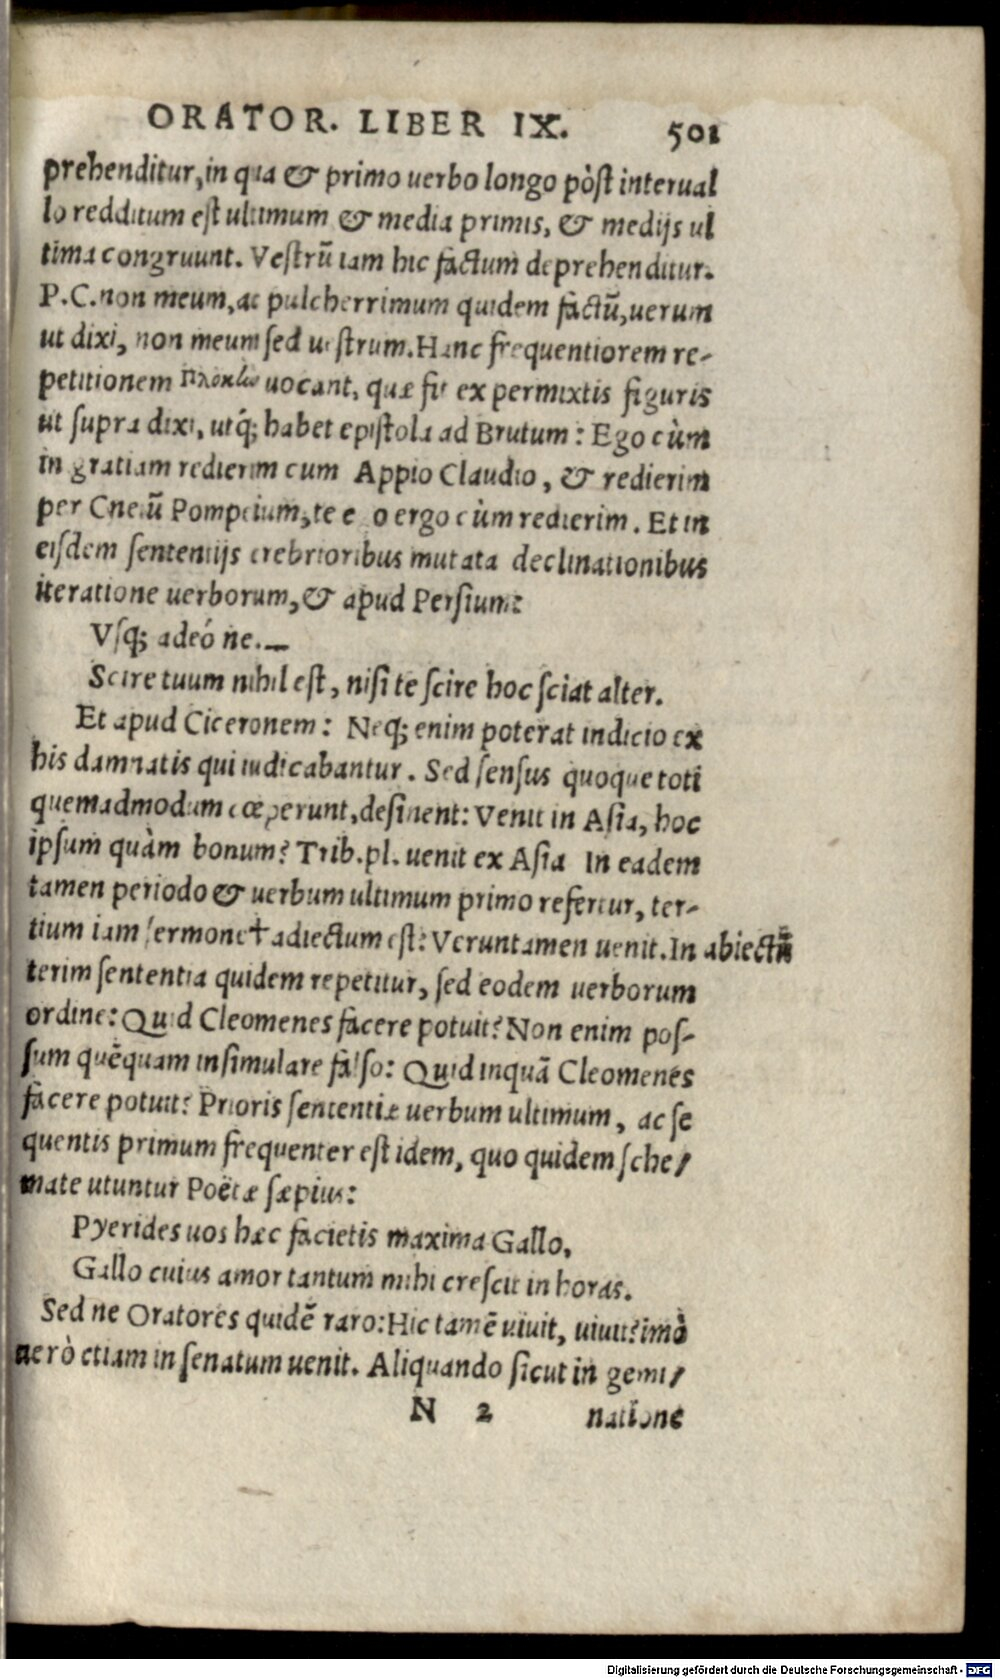 ORATOR. LIBER IX. 501
prehenditur, in qua & primo uerbo longo pòst interual
lo redditum est ultimum & media primis, & medijs ul
tima congruunt. Vestrũ iam hic factum deprehenditur.
P.C. non meum, ac pulcherrimum quidem factũ, uerum
ut dixi, non meum sed uestrum. Hanc frequentiorem re-
petitionem uocant, quæ fit ex permixtis figuris
ut supra dixi, utq; habet epistola ad Brutum: Ego cùm
in gratiam redierim cum Appio Claudio, & redierim
per Cneiũ Pompeium, te e o ergo cùm redierim. Et in
eisdem sententijs crebrioribus mutata declinationibus
iteratione uerborum, & apud Persium:
Vsq; adeó ne.—
Scire tuum nihil est, nisi te scire hoc sciat alter.
Et apud Ciceronem: Neq; enim poterat indicio ex
his damnatis qui iudicabantur. Sed sensus quoque toti
quemadmodum cœperunt, desinent: Venit in Asia, hoc
ipsum quàm bonum? Trib.pl. uenit ex Asia In eadem
tamen periodo & uerbum ultimum primo refertur, ter-
tium iam sermone† adiectum est: Veruntamen uenit. In abiectũ
terim sententia quidem repetitur, sed eodem uerborum
ordine: Quid Cleomenes facere potuit? Non enim pos-
sum quẽquam insimulare falso: Quid inquã Cleomenes
facere potuit? Prioris sententiæ uerbum ultimum, ac se
quentis primum frequenter est idem, quo quidem sche/
mate utuntur Poëtæ sæpius:
Pyerides uos hæc facietis maxima Gallo,
Gallo cuius amor tantum mihi crescit in horas.
Sed ne Oratores quidẽ raro: Hic tamẽ uiuit, uiuit? imò
uerò etiam in senatum uenit. Aliquando sicut in gemi/
N 2 natione
Digitalisierung gefördert durch die Deutsche Forschungsgemeinschaft - DFG